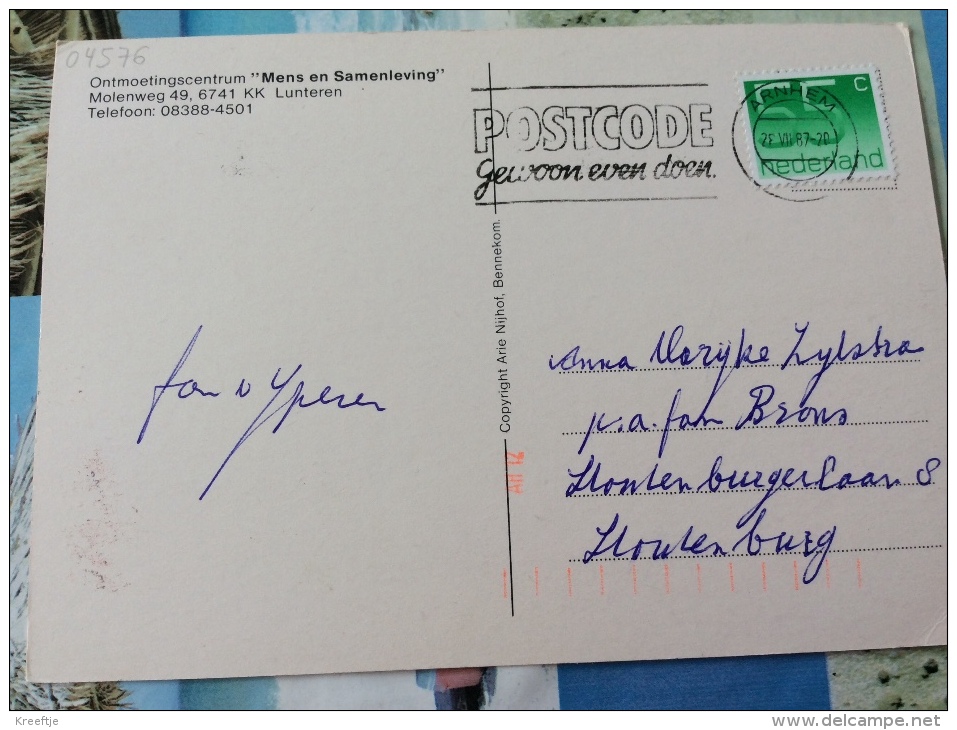 04576
Ontmoetingscentrum "Mens en Samenleving"
Molenweg 49, 6741 KK Lunteren
Telefoon: 08388-4501
POSTCODE
gewoon even doen.
ARNHEM
VII 87-20
55 c
nederland
Copyright Arie Nijhof, Bennekom.
fam v Yperen
Anna Marijke Zylstra
p.a. fam Brons
Stoutenburgerlaan 8
Stoutenburg
Kreeftje
delcampe.net